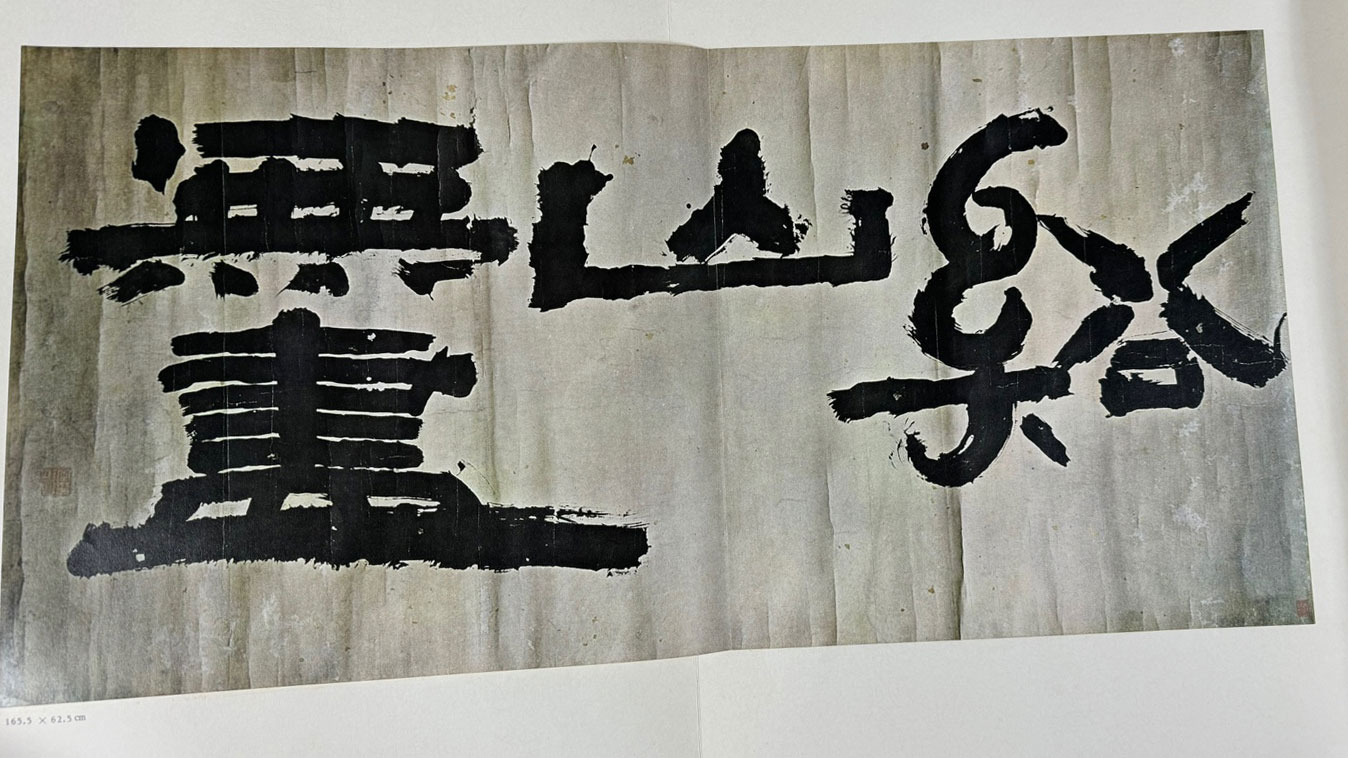 谿山無盡
165.5 × 62.5 cm